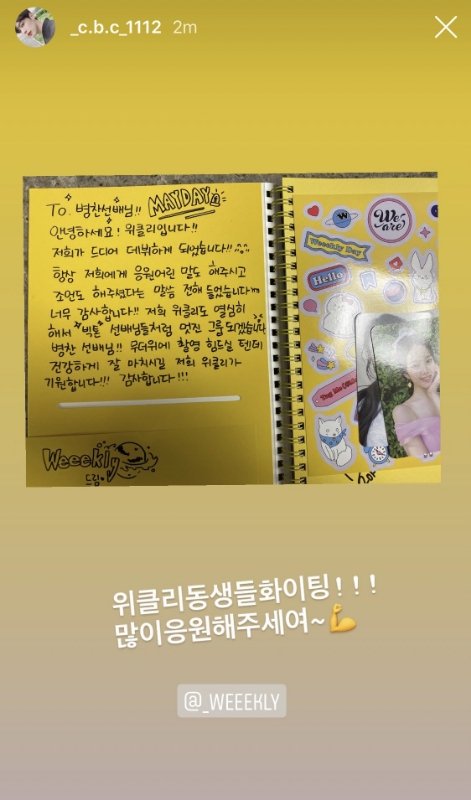 _c.b.c_1112 2m
To. 병찬선배님!! MAYDAY
안녕하세요! 위클리입니다!!
저희가 드디어 데뷔하게 되었습니다!!
항상 저희에게 응원어린 말도 해주시고
조언도 해주셨다는 말씀 전해 들었습니다ㅠㅠ
너무 감사합니다!! 저희 위클리도 열심히
해서 빅톤 선배님들처럼 멋진 그룹 되겠습니다
병찬 선배님!! 무더위에 촬영 힘드실 텐데
건강하게 잘 마치시길 저희 위클리가
기원합니다!!! 감사합니다!!!
Weeekly
드림
We are
Weeekly Day
Hello
위클리동생들화이팅!!!
많이응원해주세여~💪
@_WEEEKLY